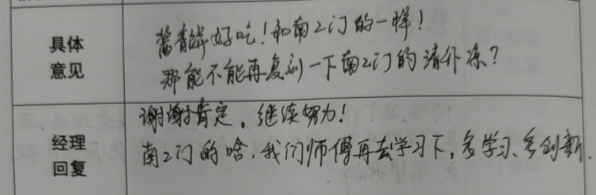 具体
意见
酱香饼好吃！和南2门的一样！
那能不能再复刻一下南2门的清补凉？
经理
回复
谢谢肯定，继续努力！
南2门的啥，我们师傅再去学习下，多学习、多创新